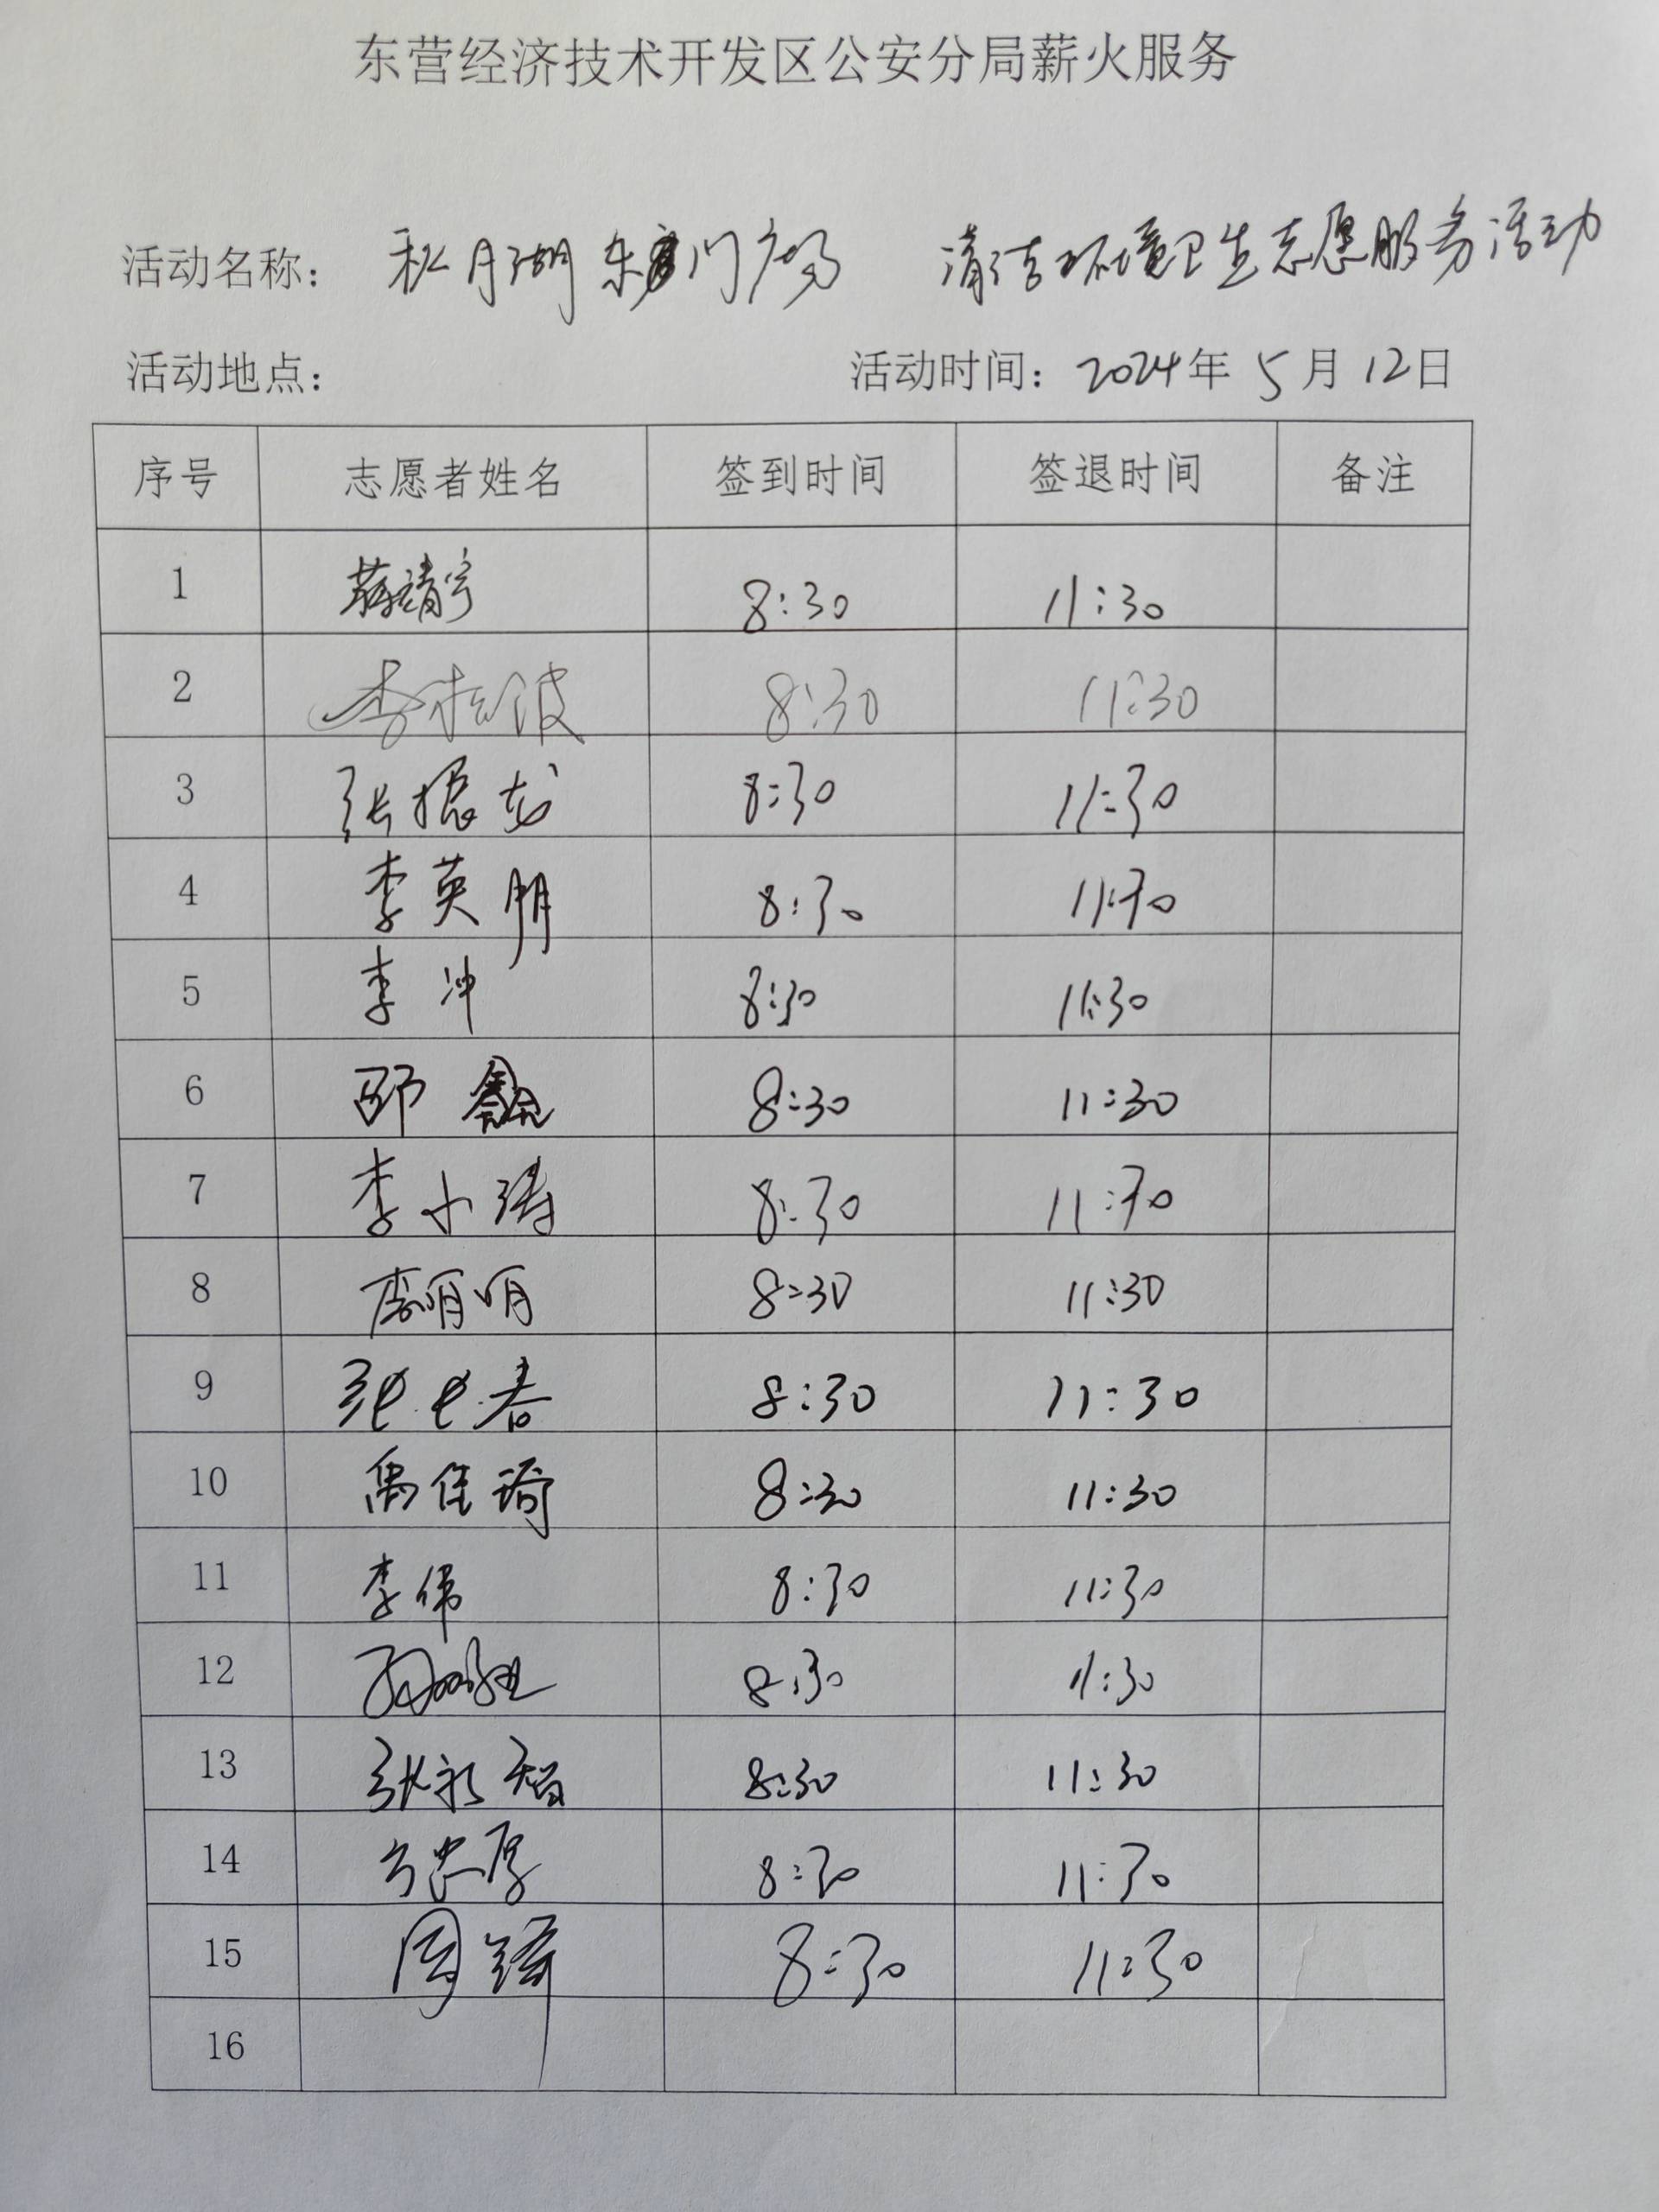 东营经济技术开发区公安分局薪火服务
活动名称： 秋月湖东门广场 清洁环境卫生志愿服务活动
活动地点： 活动时间：2024年 5月 12日
序号 志愿者姓名 签到时间 签退时间 备注
1 蒋靖宇 8:30 11:30
2 李松波 8:30 11:30
3 张振龙 8:30 11:30
4 李英朋 8:30 11:30
5 李冲 8:30 11:30
6 邵鑫 8:30 11:30
7 李小涛 8:30 11:30
8 李明明 8:30 11:30
9 春 8:30 11:30
10 禹佳琦 8:30 11:30
11 李伟 8:30 11:30
12 8:30 11:30
13 张永智 8:30 11:30
14 忠厚 8:30 11:30
15 周锋 8:30 11:30
16